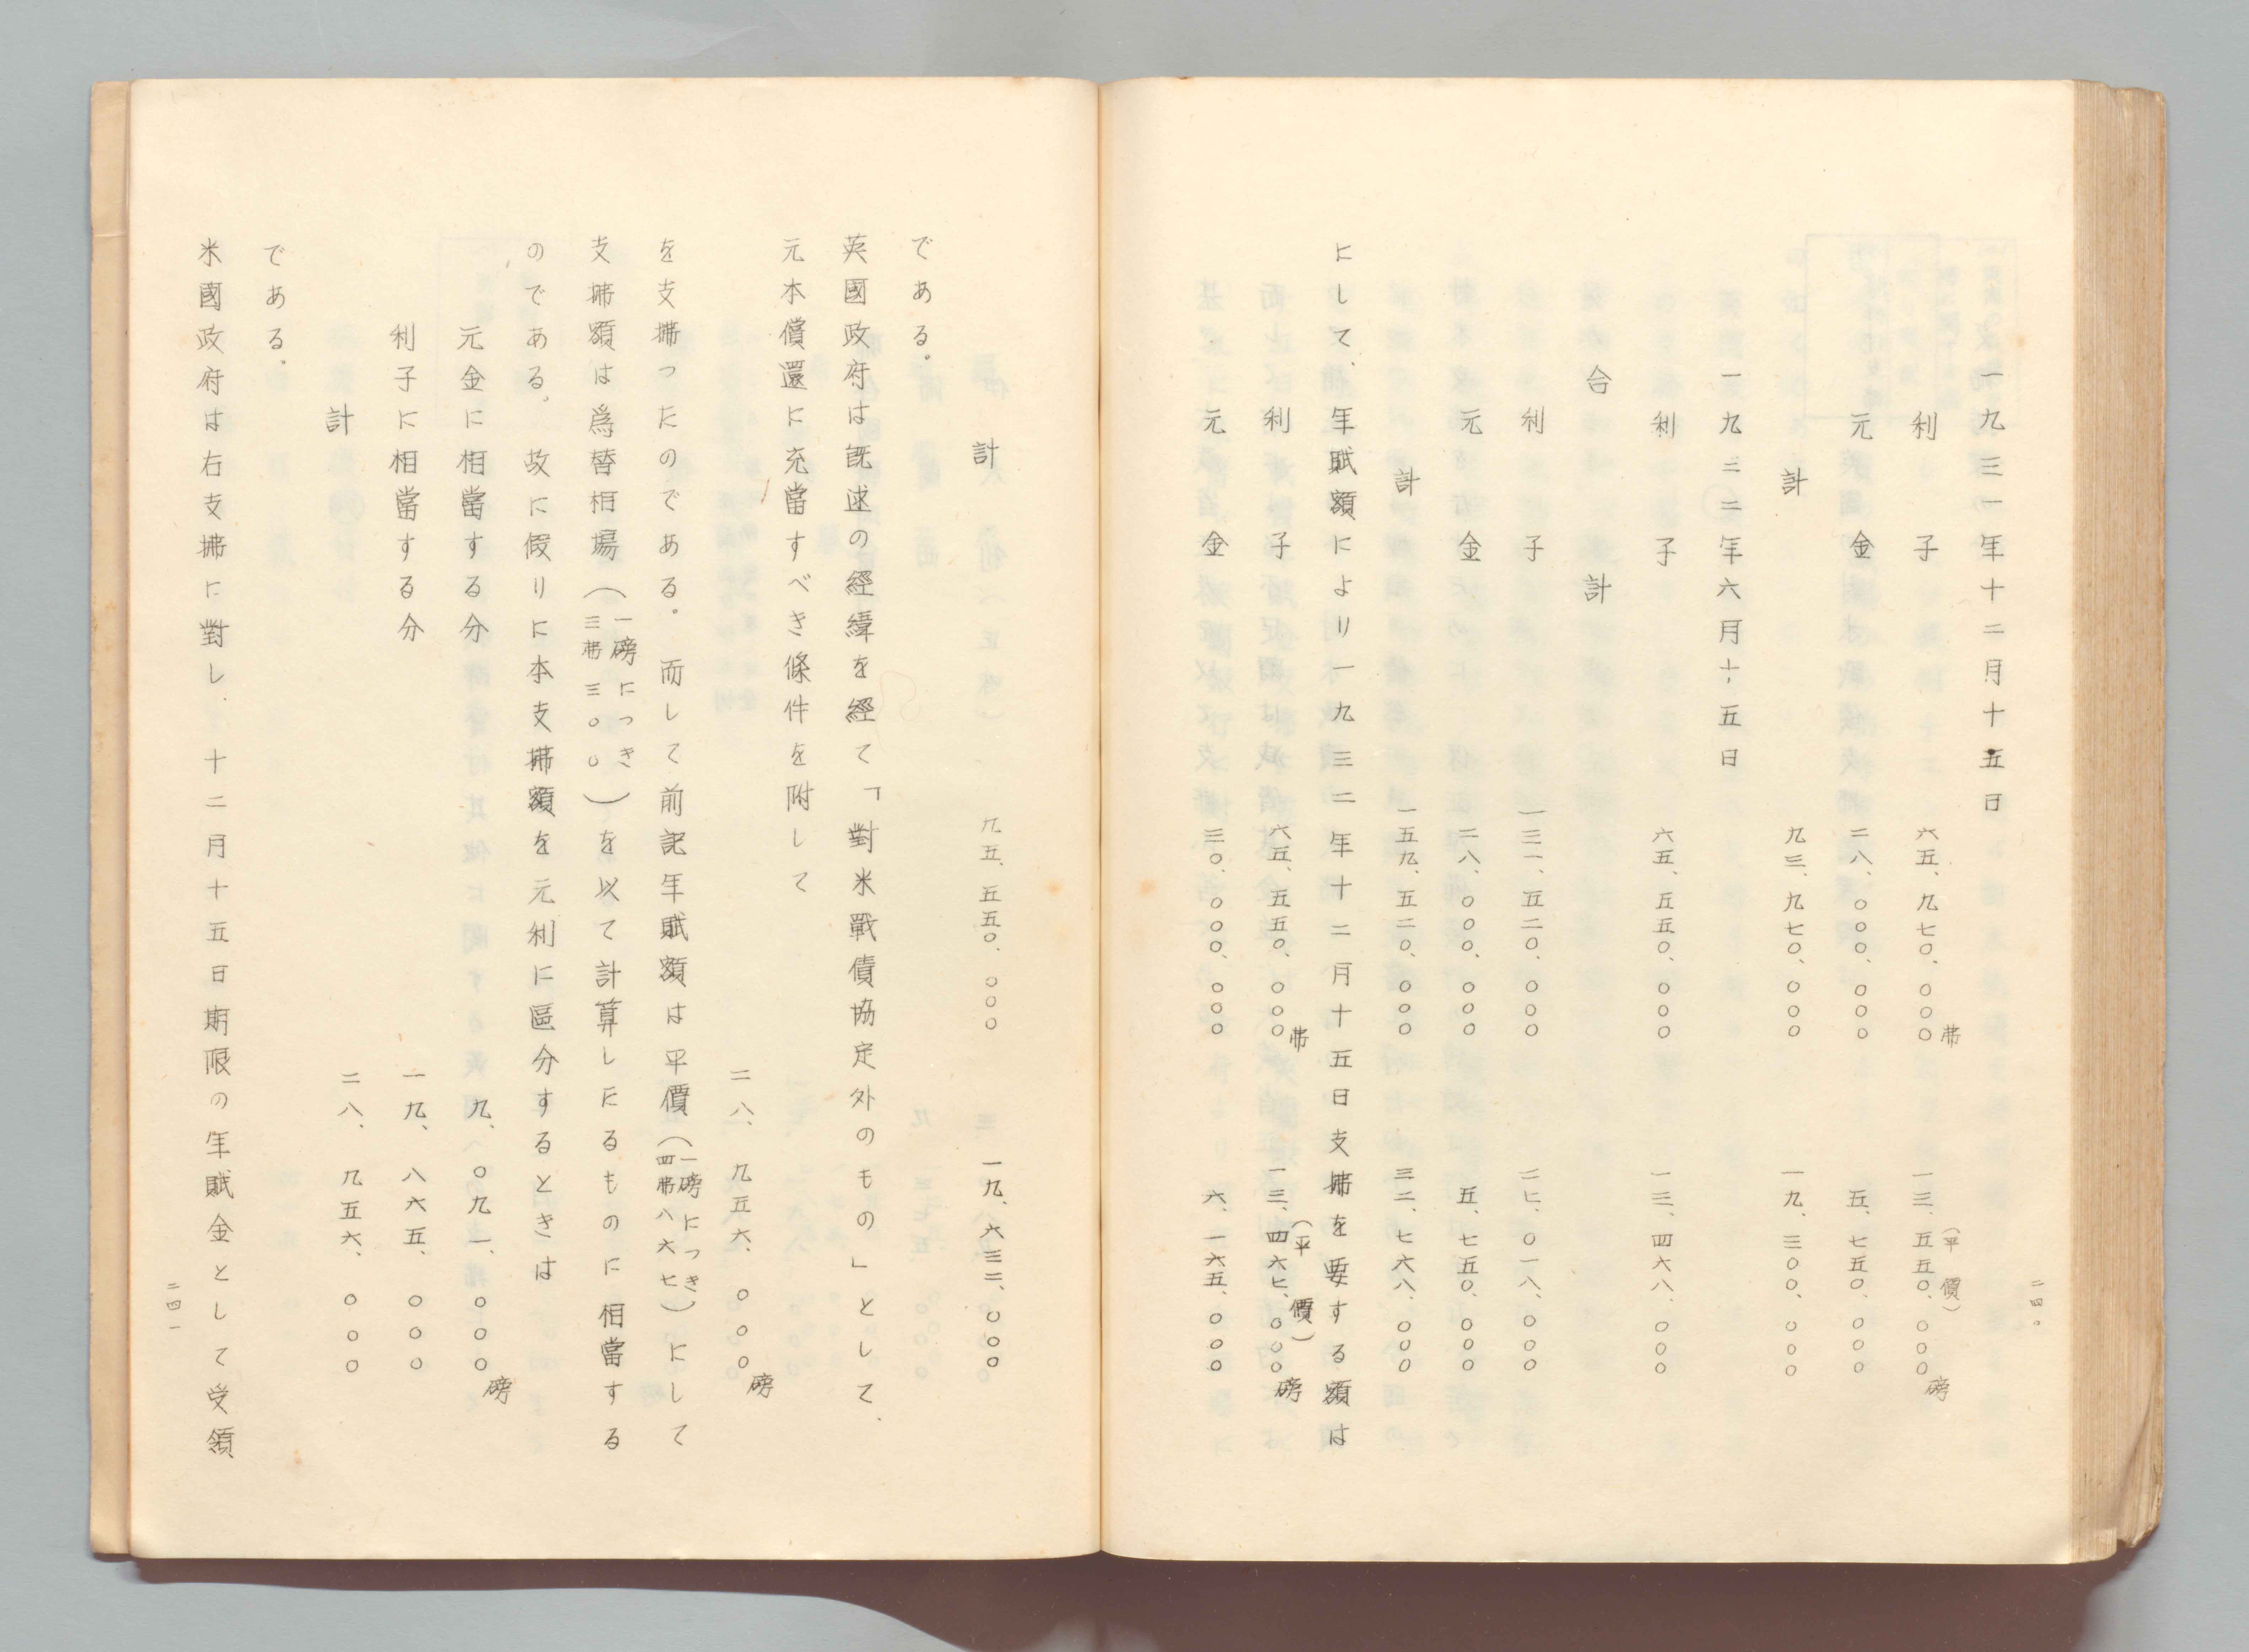 一九三一年十二月十五日
利子 六五、九七〇、〇〇〇弗 (平價) 一三、五五〇、〇〇〇磅
元金 二八、〇〇〇、〇〇〇 五、七五〇、〇〇〇
計 九三、九七〇、〇〇〇 一九、三〇〇、〇〇〇
一九三二年六月十五日
利子 六五、五五〇、〇〇〇 一三、四六八、〇〇〇
合計
利子 一三一、五二〇、〇〇〇 二七、〇一八、〇〇〇
元金 二八、〇〇〇、〇〇〇 五、七五〇、〇〇〇
計 一五九、五二〇、〇〇〇 三二、七六八、〇〇〇
にして、年賦額により一九三二年十二月十五日支拂を要する額は
利子 六五、五五〇、〇〇〇弗 (平價) 一三、四六七、〇〇〇磅
元金 三〇、〇〇〇、〇〇〇 六、一六五、〇〇〇
二四〇
計 九五、五五〇、〇〇〇 一九、六三二、〇〇〇
である。
英國政府は既述の經緯を經て「對米戰債協定外のもの」として、
元本償還に充當すべき條件を附して
二八、九五六、〇〇〇磅
を支拂つたのである。而して前記年賦額は平價(一磅につき四弗八六七)にして
支拂額は爲替相場(一磅につき三弗三〇〇)を以て計算したるものに相當する
のである。故に假りに本支拂額を元利に區分するときは
元金に相當する分 九、〇九一、〇〇〇磅
利子に相當する分 一九、八六五、〇〇〇
計 二八、九五六、〇〇〇
である。
米國政府は右支拂に對し、十二月十五日期限の年賦金として受領
二四一